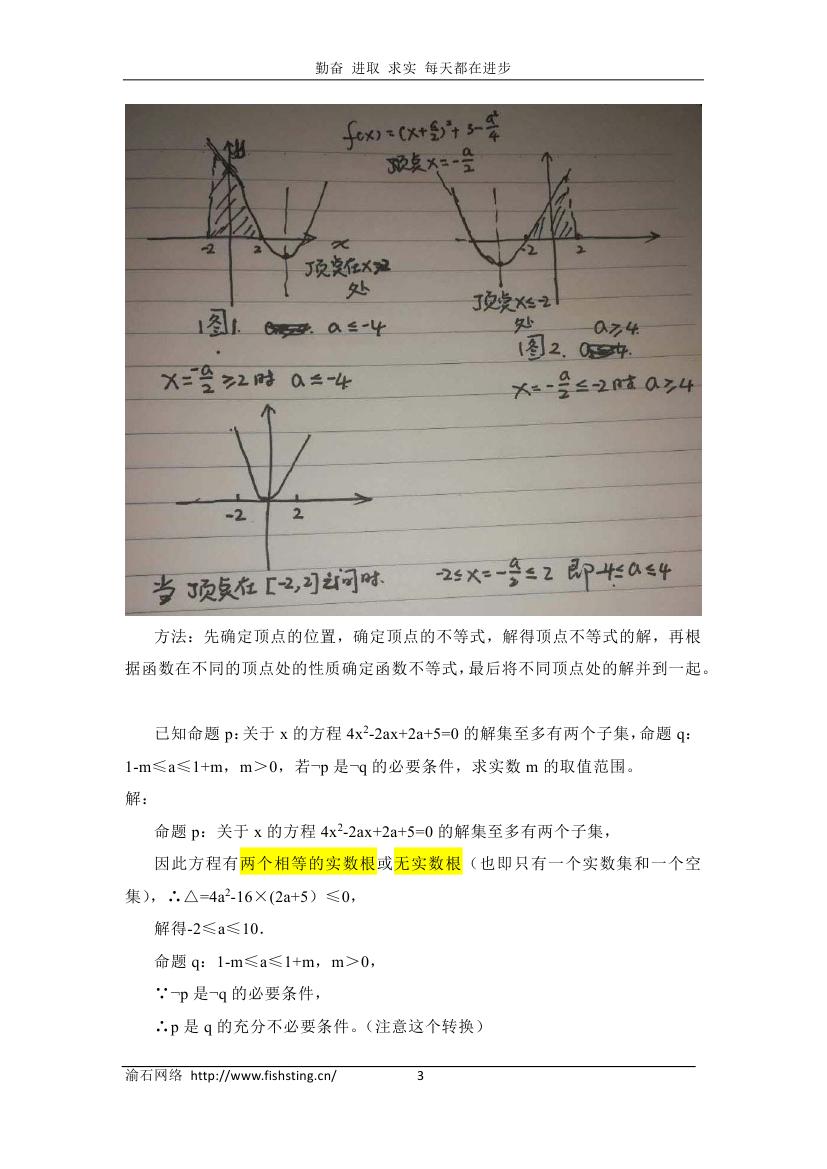 勤奋 进取 求实 每天都在进步
f(x)=(x+a/2)²+3-a²/4
顶点x=-a/2
-2 2 x
顶点在x≥2
处
图1. a≤-4
x=-a/2≥2时 a≤-4
-2 2
顶点x≤-2
处 a≥4.
图2.
x=-a/2≤-2时 a≥4
-2 2
当顶点在[-2,2]之间时. -2≤x=-a/2≤2 即-4≤a≤4
方法：先确定顶点的位置，确定顶点的不等式，解得顶点不等式的解，再根
据函数在不同的顶点处的性质确定函数不等式，最后将不同顶点处的解并到一起。
已知命题 p：关于 x 的方程 4x²-2ax+2a+5=0 的解集至多有两个子集，命题 q：
1-m≤a≤1+m，m＞0，若¬p 是¬q 的必要条件，求实数 m 的取值范围。
解：
命题 p：关于 x 的方程 4x²-2ax+2a+5=0 的解集至多有两个子集，
因此方程有两个相等的实数根或无实数根（也即只有一个实数集和一个空
集），∴△=4a²-16×(2a+5）≤0，
解得-2≤a≤10．
命题 q：1-m≤a≤1+m，m＞0，
∵¬p 是¬q 的必要条件，
∴p 是 q 的充分不必要条件。（注意这个转换）
渝石网络 http://www.fishsting.cn/ 3